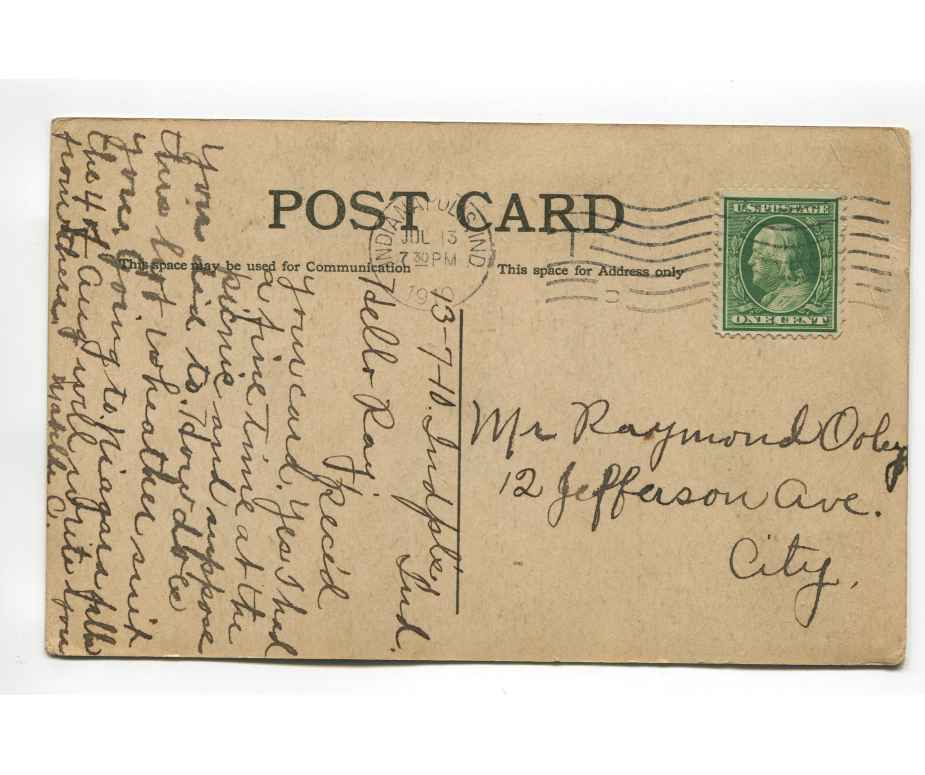 POST CARD
This space may be used for Communication
This space for Address only
INDIANAPOLIS, IND
JUL 13
7 30 PM
1910
U.S. POSTAGE
ONE CENT
Mr Raymond Ooley
12 Jefferson Ave.
City,
13-7-10. Indpls
Ind.
Hello Ray
I rec'd
your card. Yes I had
a fine time at the
picnic and suppose
you did to.
there hot wheather suit
you, going to Niagara falls
the 4 of Aug will write you
from there.
C.